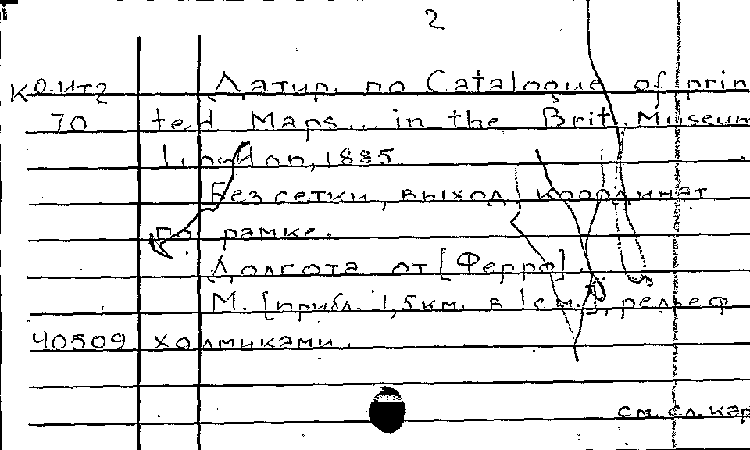 2
Датир. по Catalogue of prin
70 ted Maps.. in the Brit. Museum
London, 1885
Без сетки, выход координат
по рамке.
Долгота от [Ферро].
М. [прибл. 1,5км. в 1см.], рельеф
40509 холмиками.
см. сл. кар